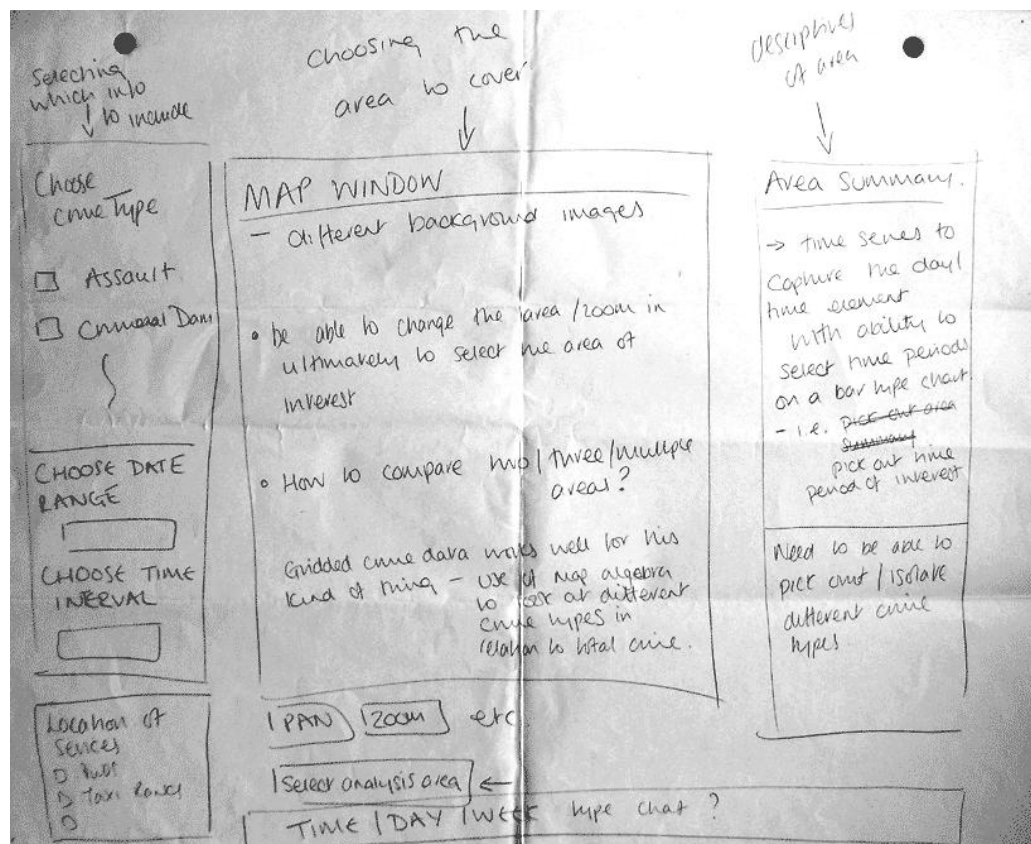 Selecting
which info
to include
Choosing the
area to cover
descriptives
of area
Choose
Crime Type
Assault
Criminal Dam
CHOOSE DATE
RANGE
CHOOSE TIME
INERVAL
Location of
Serices
Pubs
Taxi Ranks
MAP WINDOW
- different background images
• be able to change the area/zoom in
ultimately to select the area of
interest
• How to compare two/three/multiple
areas?
Gridded crime data works well for this
kind of thing - use of map algebra
to look at different
crime types in
relation to total crime.
PAN ZOOM etc.
Select analysis area ←
TIME/DAY/WEEK type chat?
Area Summary.
→ time series to
capture the day/
time element
with ability to
select time periods
on a bar type chart.
- i.e. pick out area
summary
pick out time
period of interest
Need to be able to
pick out/isolate
different crime
types.